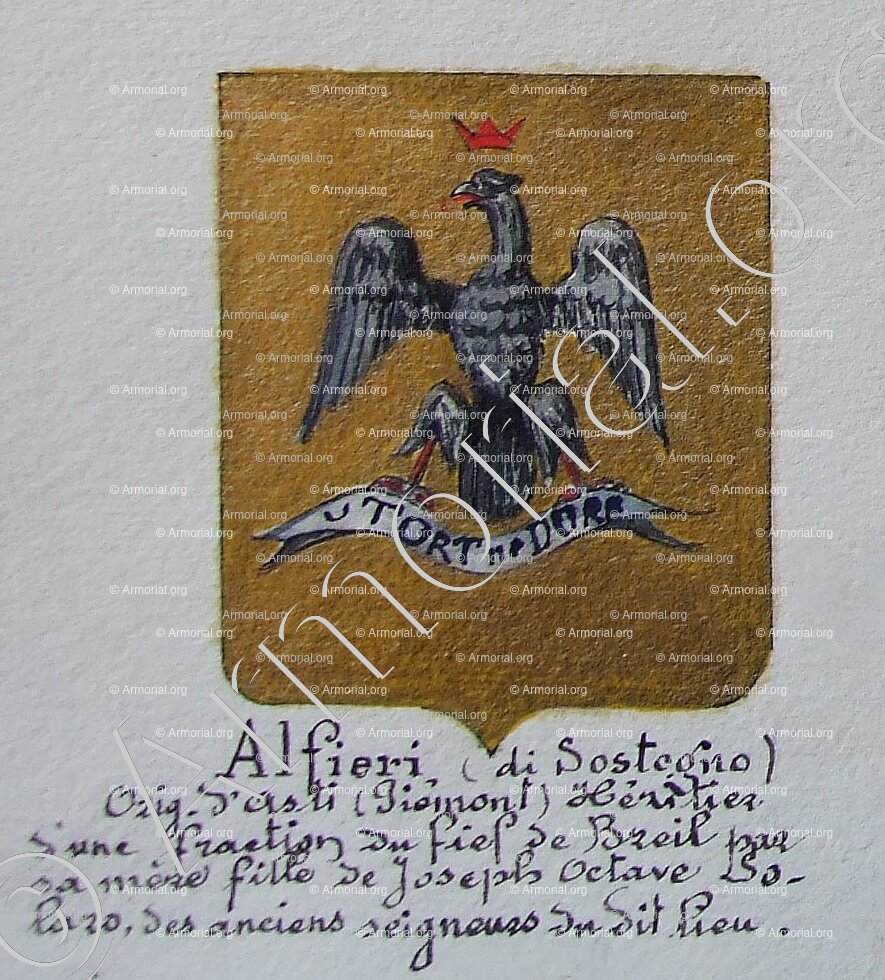 © Armorial.org
J TORT NE DURE
Alfieri (di Sostegno)
Orig. d'Asti (Piémont) Héritier
d'une fraction du fief de Breil par
sa mère fille de Joseph Octave So-
laro, des anciens seigneurs du dit lieu.